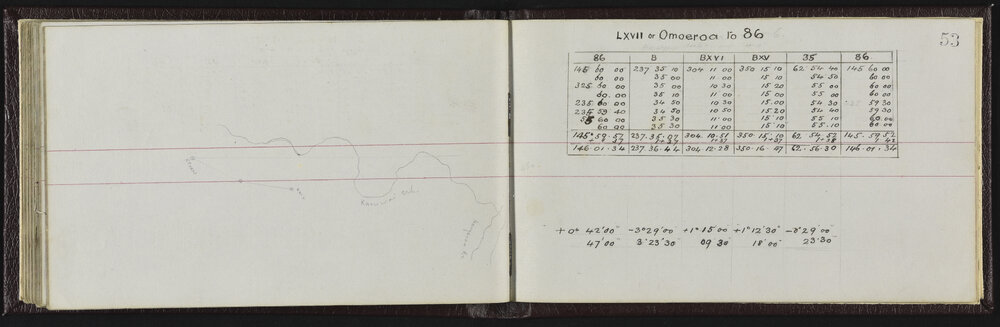 LXVII or Omoeroa to 86
53
86 B BXVI BXV 35 86
145 60 00 237 35 10 304 11 00 350 15 10 62 54 40 145 60 00
60 00 35 00 11 00 15 10 54 50 60 00
325 60 00 35 00 10 30 15 20 55 00 60 00
60 00 35 10 11 00 15 00 55 00 60 00
235 60 00 34 50 10 30 15 00 54 30 59 30
235 59 40 34 50 10 50 15 20 54 40 59 30
55 60 00 35 30 11 00 15 10 55 10 60 00
60 00 35 30 11 00 15 10 55 10 60 00
145° 59 52 237 35 07 304 10 51 350 15 10 62 54 52 145 59 52
146 01 34 237 36 44 304 12 28 350 16 47 62 56 30 146 01 34
+0° 42' 00" -3° 29' 00 +1° 15 00 +1° 12' 30" -0° 29 00
47' 00 3° 23' 30 09 30 18' 00 23 30